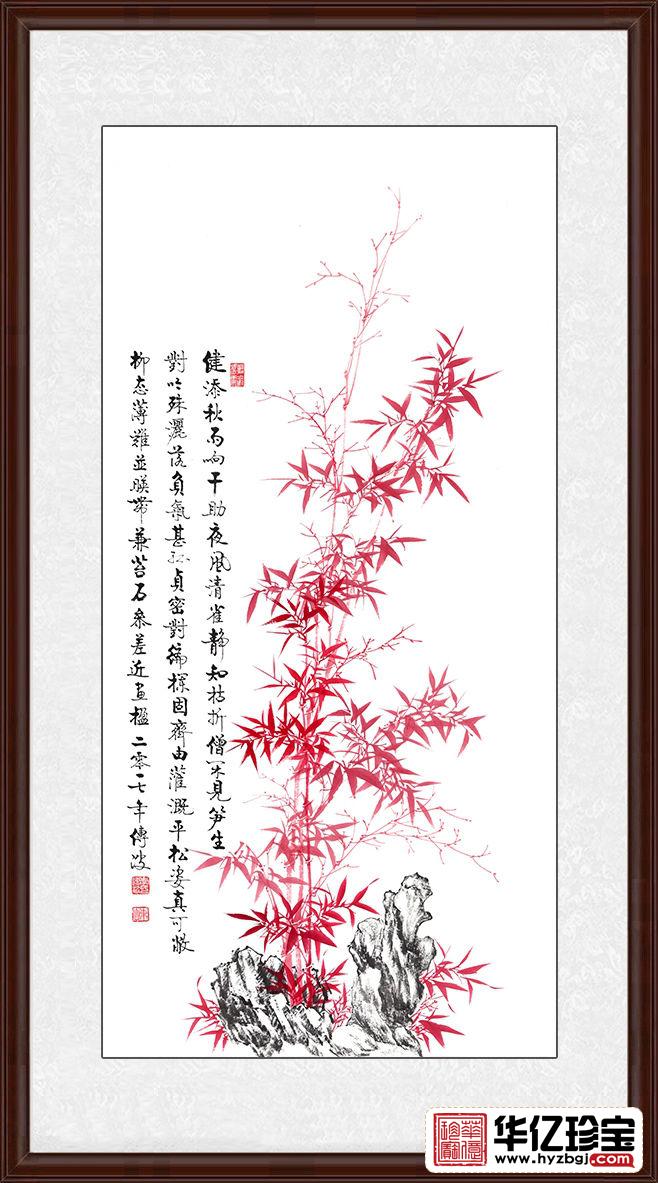 健添秋雨响干助夜風清雀静知枯折僧不見笋生
對吟殊灑落負氣甚孤貞密對編攃固齊由灌溉平松姿真可敵
柳态薄難並暎帶兼苔石參差近画楹二零一七年傳波
华亿珍宝
www.hyzbgj.com